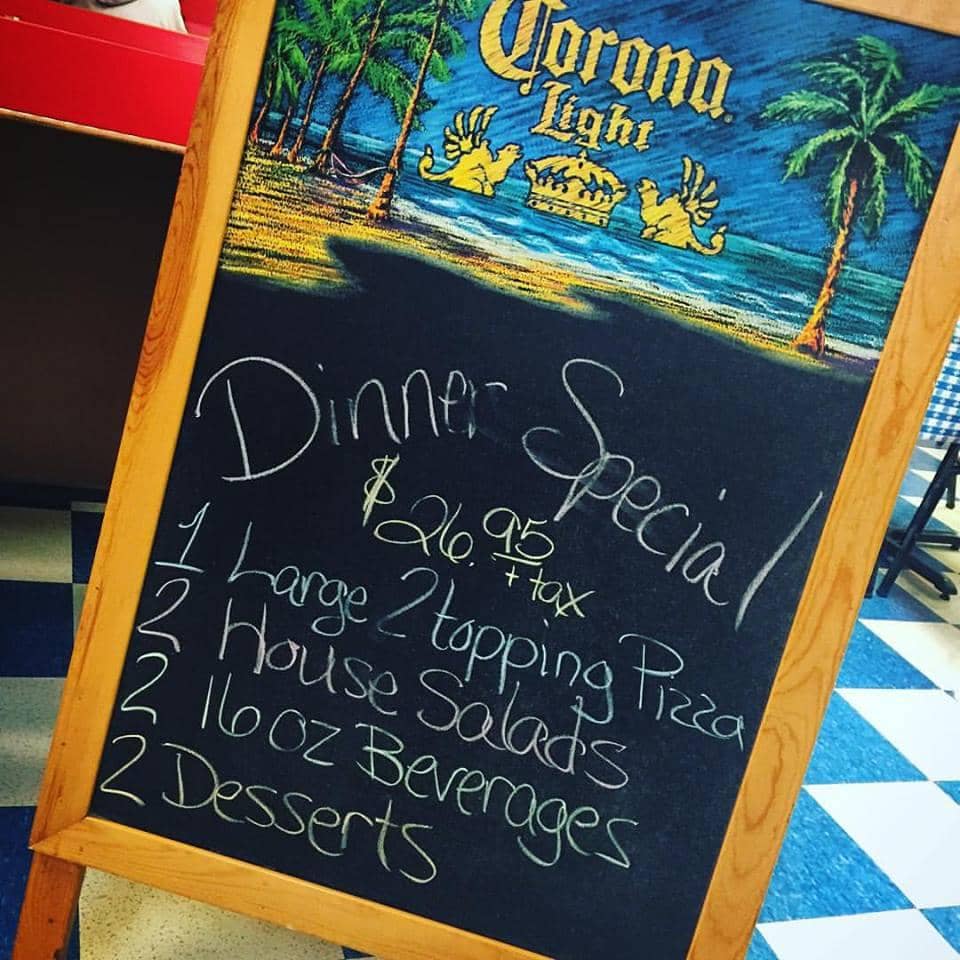 Corona
Light
Dinner Special
$26.95
+ tax
1 Large 2 topping Pizza
2 House Salads
2 16 oz Beverages
2 Desserts